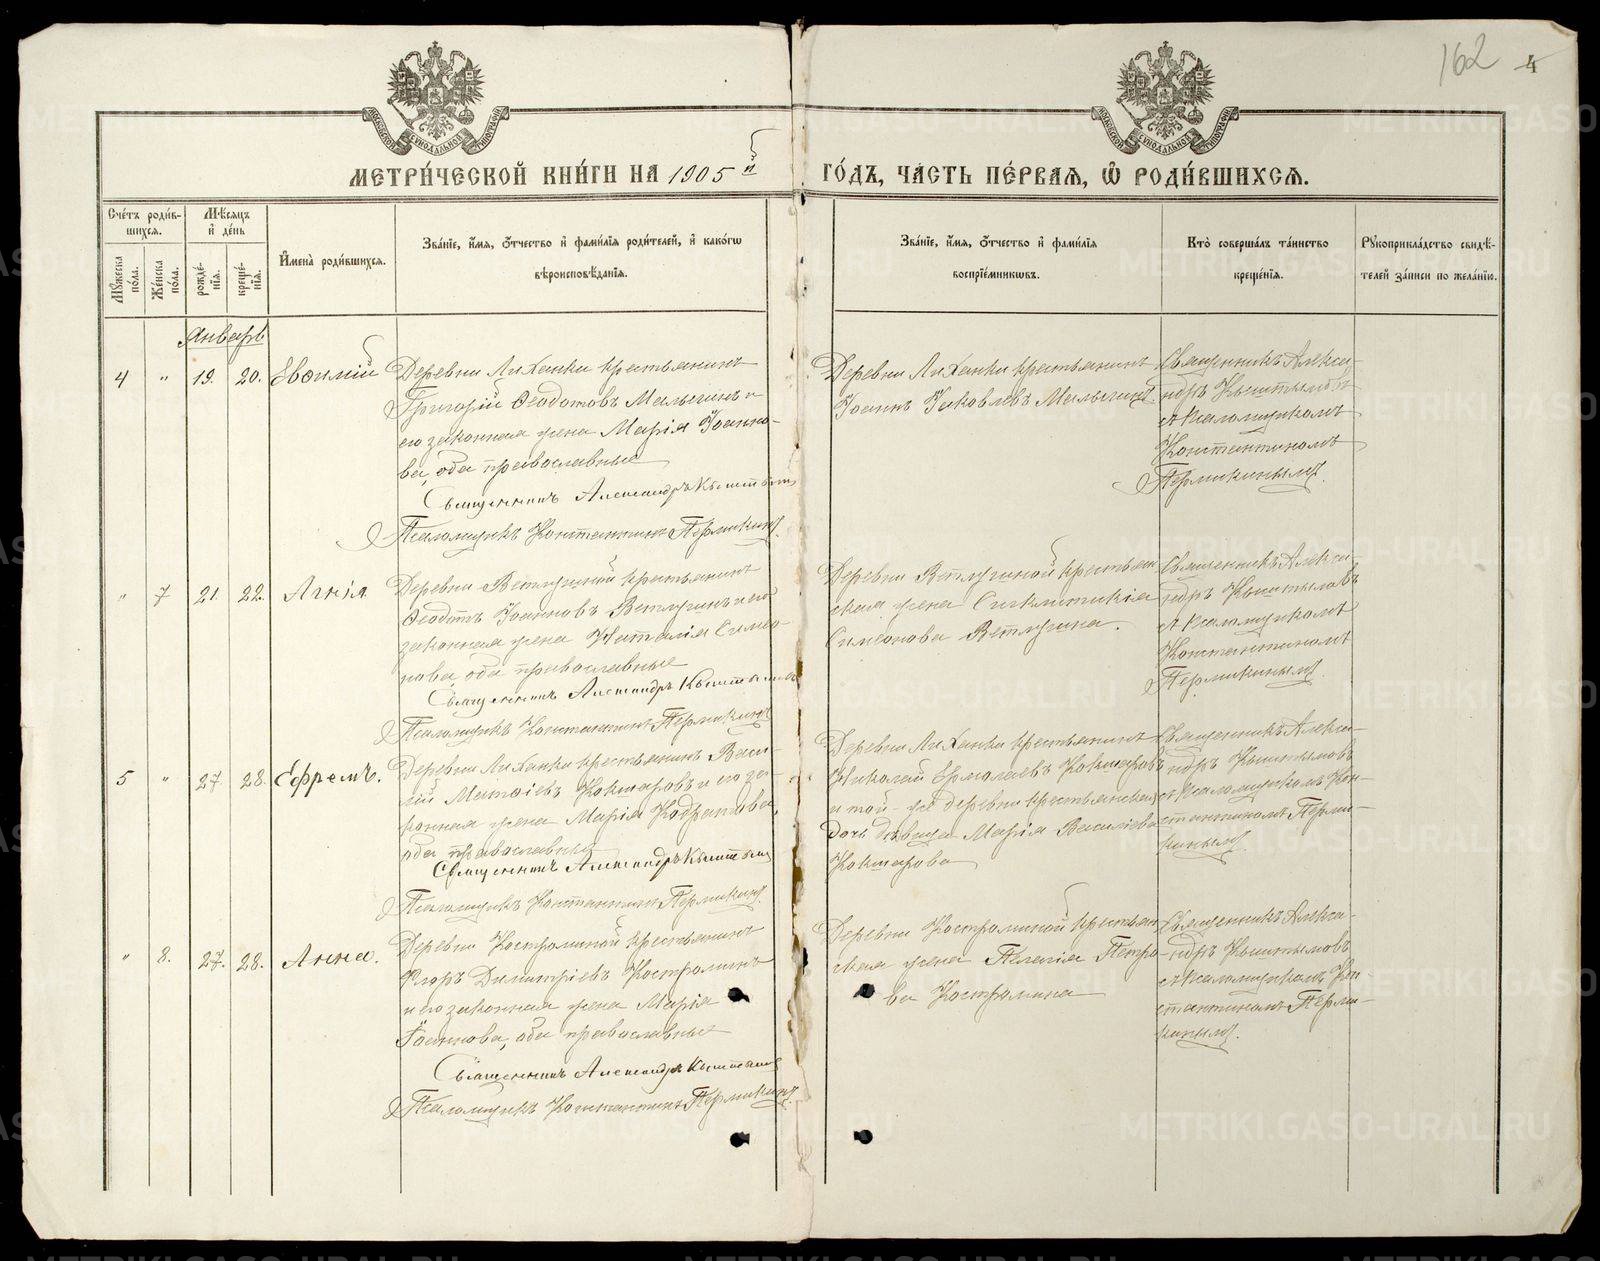 162 4
МОСКОВСКОЙ СѴНОДАЛЬНОЙ ТИПОГРАФІИ
МОСКОВСКОЙ СѴНОДАЛЬНОЙ ТИПОГРАФІИ
МЕТРИ́ЧЕСКОЙ КНИ́ГИ НА 1905й ГО́ДЪ, ЧА́СТЬ ПЕ́РВАЯ, Ѡ РОДИ́ВШИХСЯ.
Сче́тъ роди́в-
шихся.
Му́жеска по́ла.
Же́нска по́ла.
Мѣ́сяцъ
и҆ де́нь
рожде́-
нїя.
креще́-
нїя.
И҆мена̀ роди́вшихся.
Зва́нїе, и҆́мя, ѻ҆́тчество и҆ фами́лїя роди́телей, и҆ како́гѡ
вѣроисповѣ́данїя.
Зва́нїе, и҆́мя, ѻ҆́тчество и҆ фами́лїя
воспрїе́мникѡвъ.
Кто̀ соверша́лъ та́инство
креще́нїя.
Рꙋкоприкла́дство свидѣ́-
телей за́писи по жела́нїю.
Январь
4 " 19. 20. Евѳимій
Деревни Лиханки крестьянинъ
Григорій Ѳеодотовъ Малыгинъ и
его законная жена Марія Іоанно-
ва, оба православные
Священникъ Александръ Кыштымовъ
Псаломщикъ Константинъ Пермикинъ.
Деревни Лиханки крестьянинъ
Іоаннъ Іаковлевъ Малыгинъ.
Священникъ Алекса-
ндръ Кыштымовъ
съ Псаломщикомъ
Константиномъ
Пермикинымъ.
" 7 21. 22. Агнія
Деревни Ветлугиной крестьянинъ
Ѳеодотъ Іоанновъ Ветлугинъ и его
законная жена Наталія Симео-
нова, оба православные
Священникъ Александръ Кыштымовъ
Псаломщикъ Константинъ Пермикинъ
Деревни Ветлугиной крестьян
ская жена Сигклитикія
Симеонова Ветлугина.
Священникъ Алекса-
ндръ Кыштымовъ
съ Псаломщикомъ
Константиномъ
Пермикинымъ.
5 " 27 28. Ефремъ.
Деревни Лиханки крестьянинъ Васи-
лій Матѳіевъ Кокшаровъ и его за-
конная жена Марія Кодратова,
оба православные
Священникъ Александръ Кыштымовъ
Псаломщикъ Константинъ Пермикинъ.
Деревни Лиханки крестьянинъ
Николай Ермолаевъ Кокшаровъ
и той-же деревни крестьянская
дочь дѣвица Марія Василіева
Кокшарова
Священникъ Алекса-
ндръ Кыштымовъ
съ Псаломщикомъ Кон
стантиномъ Перми-
кинымъ.
" 8. 27. 28. Анна.
Деревни Костроминой крестьянинъ
Флоръ Димитріевъ Костроминъ
и его законная жена Марія
Іоаннова, оба православные
Священникъ Александръ Кыштымовъ
Псаломщикъ Константинъ Пермикинъ
Деревни Костроминой крестьян
ская жена Пелагія Петро-
ва Костромина
Священникъ Алекса-
ндръ Кыштымовъ
съ Псаломщикомъ Кон
стантиномъ Перми-
кинымъ.
METRIKI.GASO-URAL.RU